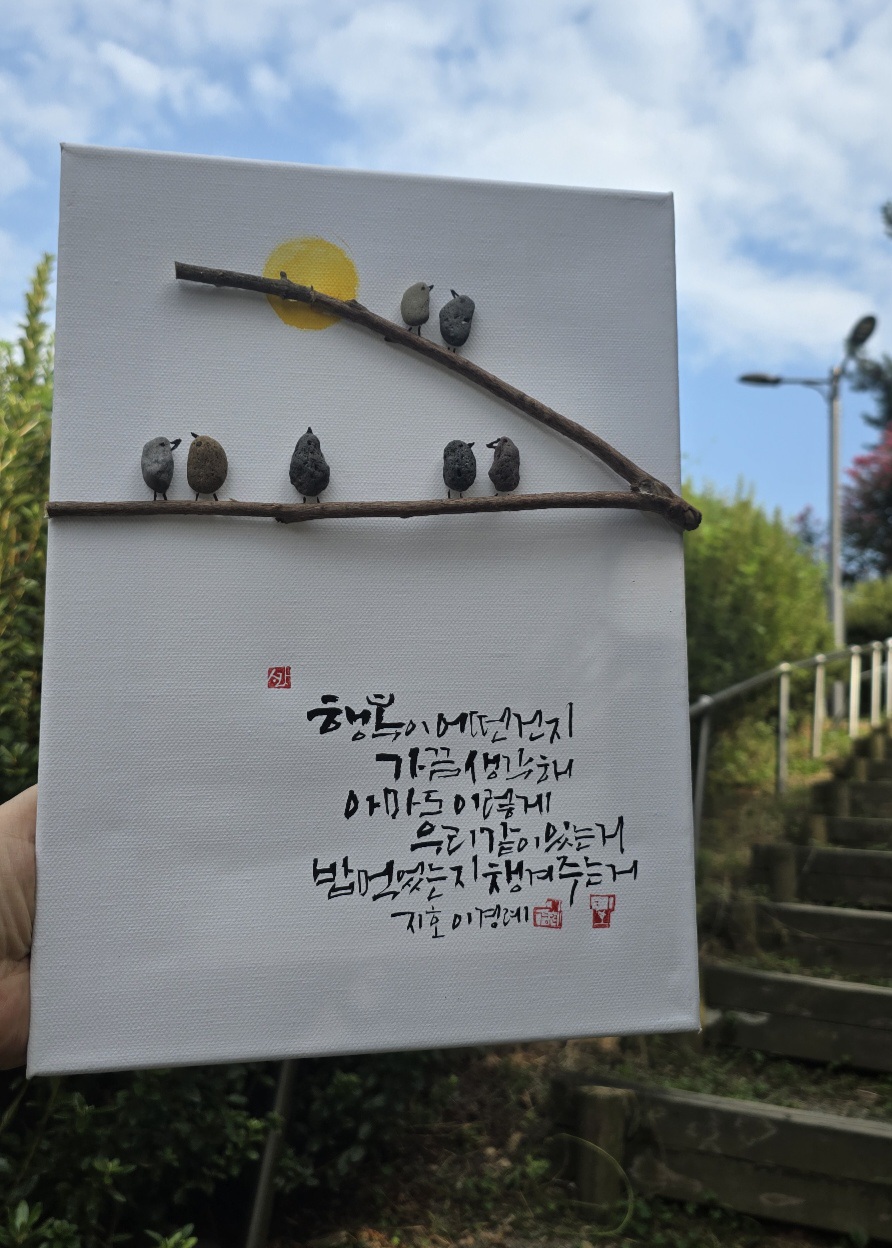 행복이 어떤건지
가끔 생각해
아마도 이렇게
우리같이 있는거
밥먹었는지 챙겨주는거
지호 이경례